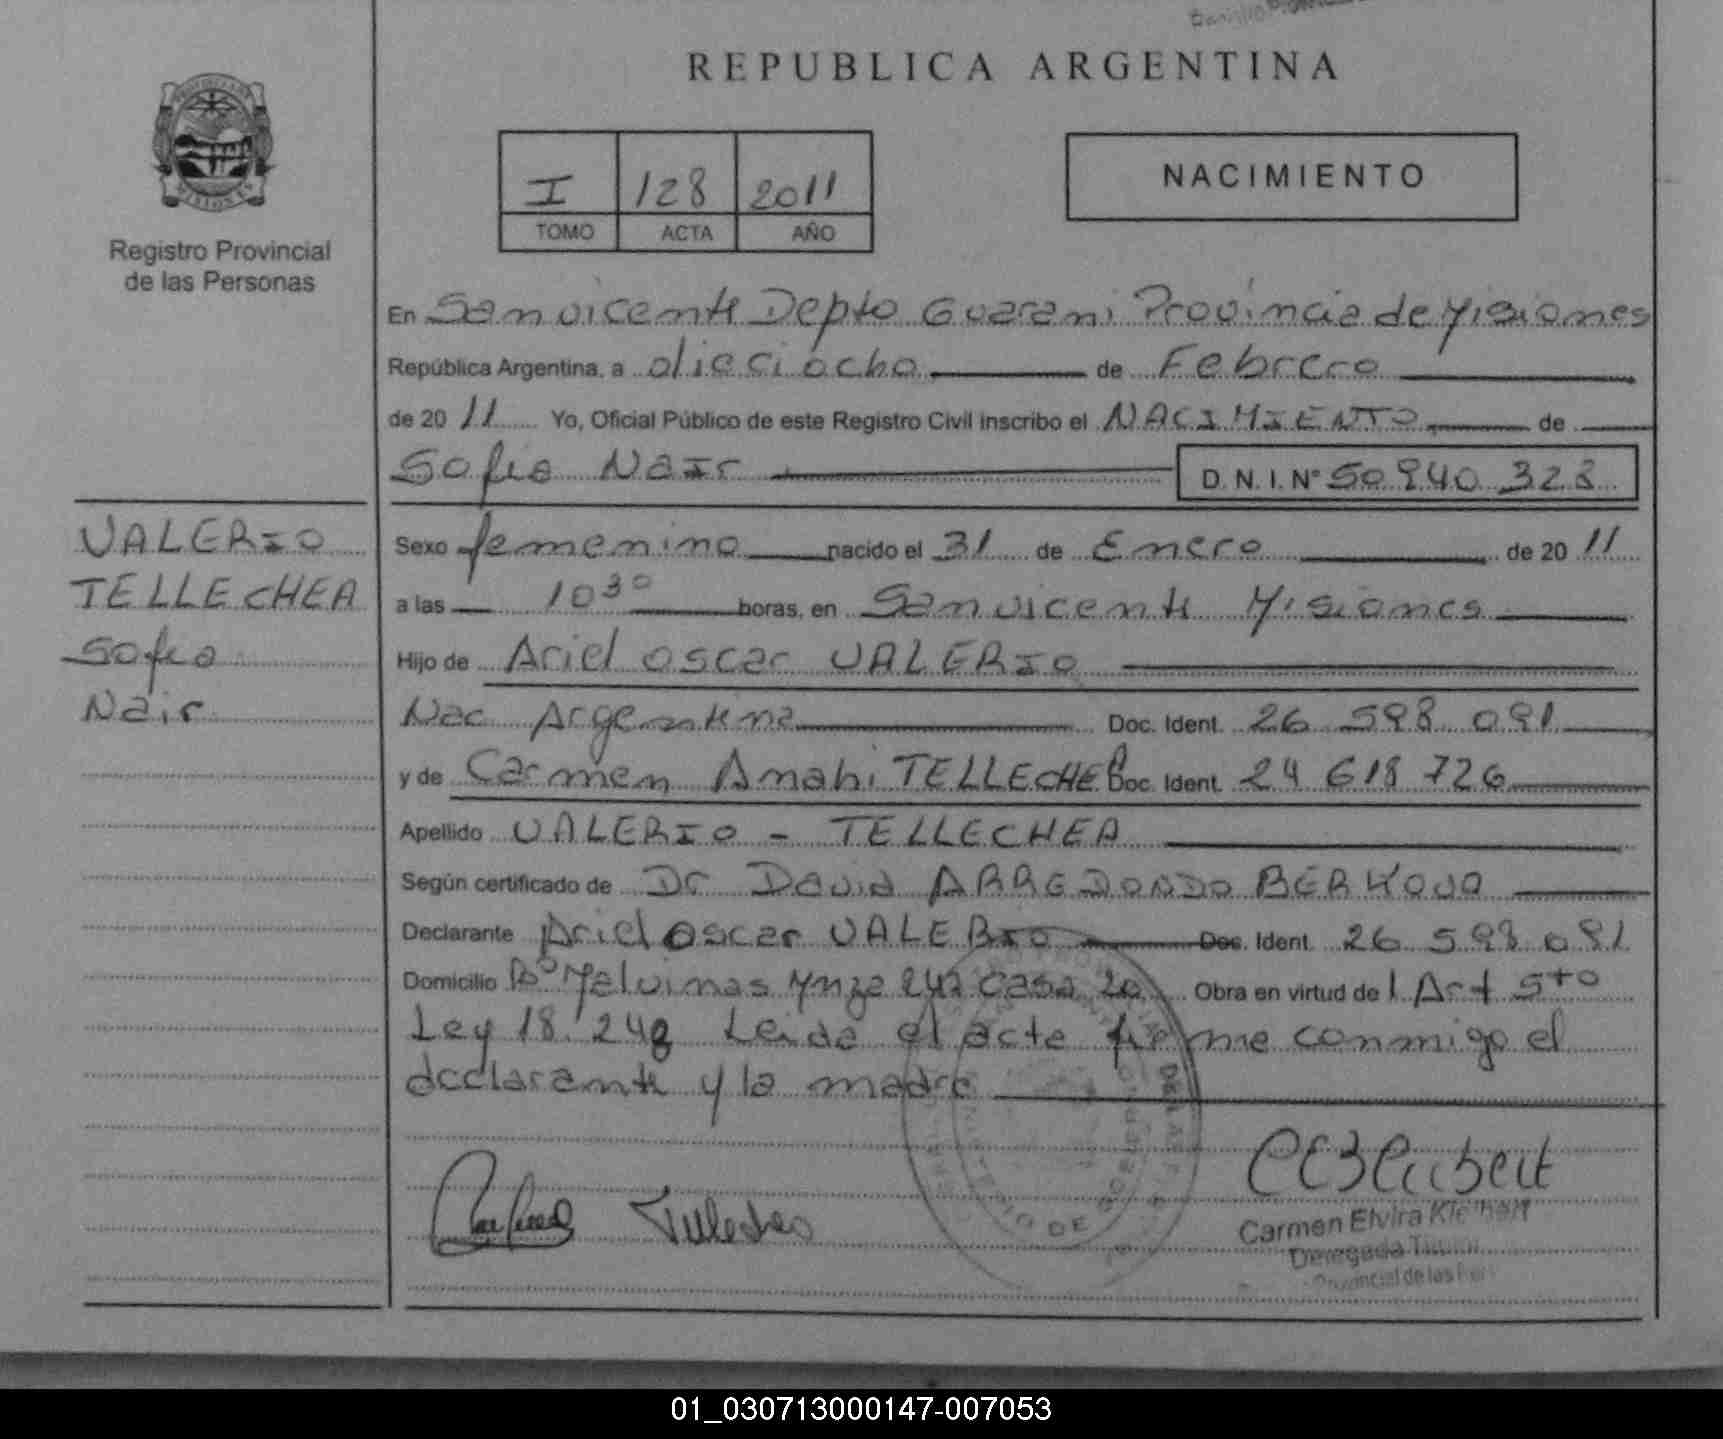 REPUBLICA ARGENTINA
NACIMIENTO
I 128 2011
TOMO ACTA AÑO
Registro Provincial
de las Personas
VALERIO
TELLECHEA
Sofia
Nair
En San vicente Depto Guarani Provincia de Misiones
República Argentina, a dieciocho de Febrero
de 20 11 Yo, Oficial Público de este Registro Civil inscribo el NACIMIENTO de
Sofia Nair D. N. I. Nº 50 940 323
Sexo femenino nacido el 31 de Enero de 20 11
a las 10 30 horas, en San vicente Misiones
Hijo de Ariel oscar VALERIO
Nac Argentina Doc. Ident. 26 598 091
y de Carmen Amahi TELLECHEA Doc. Ident. 24 618 726
Apellido VALERIO - TELLECHEA
Según certificado de Dr David ARREDONDO BERKOVA
Declarante Ariel oscar VALERIO Doc. Ident. 26 598 091
Domicilio Bº Malvinas casa 20 Obra en virtud de l Art 5to
Ley 18.248 Leida el acta firme conmigo el
declarante y la madre
Tellechea
Carmen Elvira
Delegada
Provincial de las
01_030713000147-007053